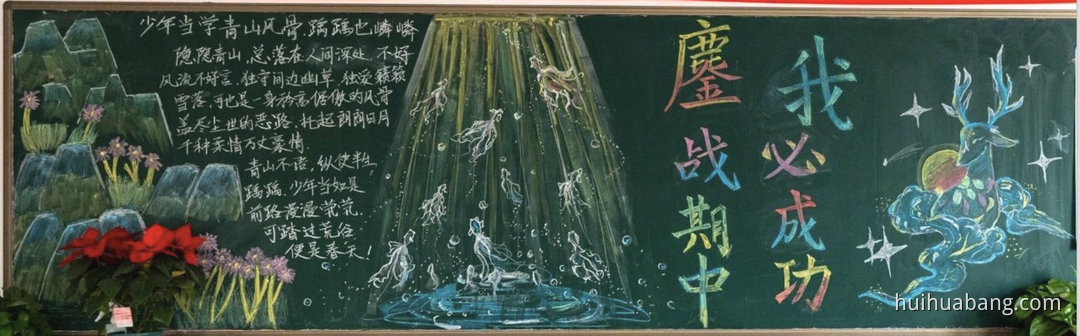 少年当学青山风骨,踽踽也嶙嶙
隐隐青山,总落在人间深处,不好
风流不好言,独守间边幽草,独爱簌簌
雪落,可也是一身矜高倨傲的风骨
盖尽尘世的恶路,托起朗朗日月
千种柔情万丈豪情.
青山不语,纵使半生
踽踽,少年当如是
前路漫漫茫茫,
可踏过荒谷
便是春天!
鏖战期中
我必成功
huihuabang.com